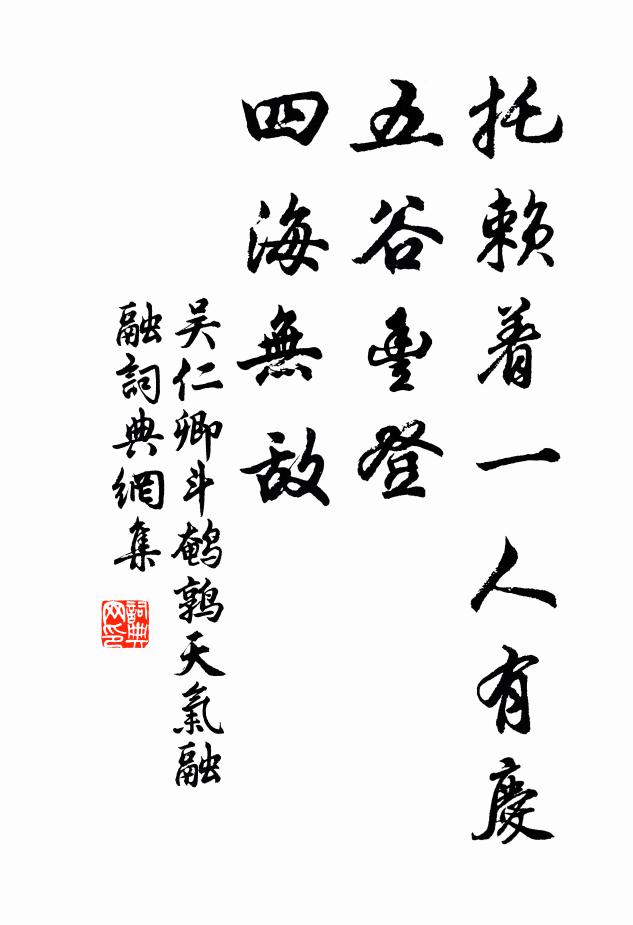 托赖着一人有慶
五谷豊登
四海無敌
吴仁卿斗鹌鹑天氣融
融詞典網集
詞典网印